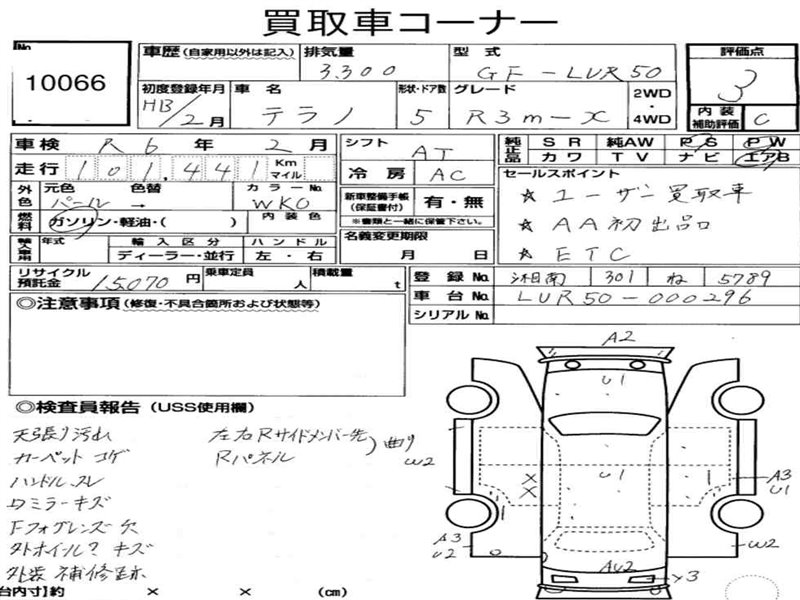 買取車コーナー
No.
10066
車歴(自家用以外は記入)
排気量
3,300
型式
GF-LUR50
評価点
3
初度登録年月
/2月
車名
テラノ
形状・ドア数
5
グレード
R3m-X
2WD
・
4WD
内装
補助評価
C
車検 R6年 2月
走行 101,441 Km マイル
シフト
AT
純正品
SR 純AW PS PW
カワ TV ナビ エアB
冷房 AC
外色
元色
パール
色替
→
カラーNo.
WK0
新車整備手帳
(保証書付)
有・無
※書類と一緒に保管下さい。
セールスポイント
★ ユーザー買取車
★ AA初出品
★ ETC
燃料
ガソリン・軽油・( )
内装色
輸入車用
年式
輸入区分
ディーラー・並行
ハンドル
左・右
名義変更期限
月 日
リサイクル
預託金
15,070円
乗車定員
人
積載量
t
登録No. 湘南 301 ね 5789
車台No. LUR50-000296
シリアルNo.
◎注意事項(修復・不具合箇所および状態等)
◎検査員報告(USS使用欄)
天張り汚れ
カーペットコゲ
ハンドルスレ
ワミラーキズ
Fフォグレンズ欠
外ホイル? キズ
外装 補修跡
左右Rサイドメンバー先
Rパネル
)曲り
A2
U1
W2
U1
A3
U1
A3
U2
W2
AU2
Y3
台内寸]約 × × (cm)